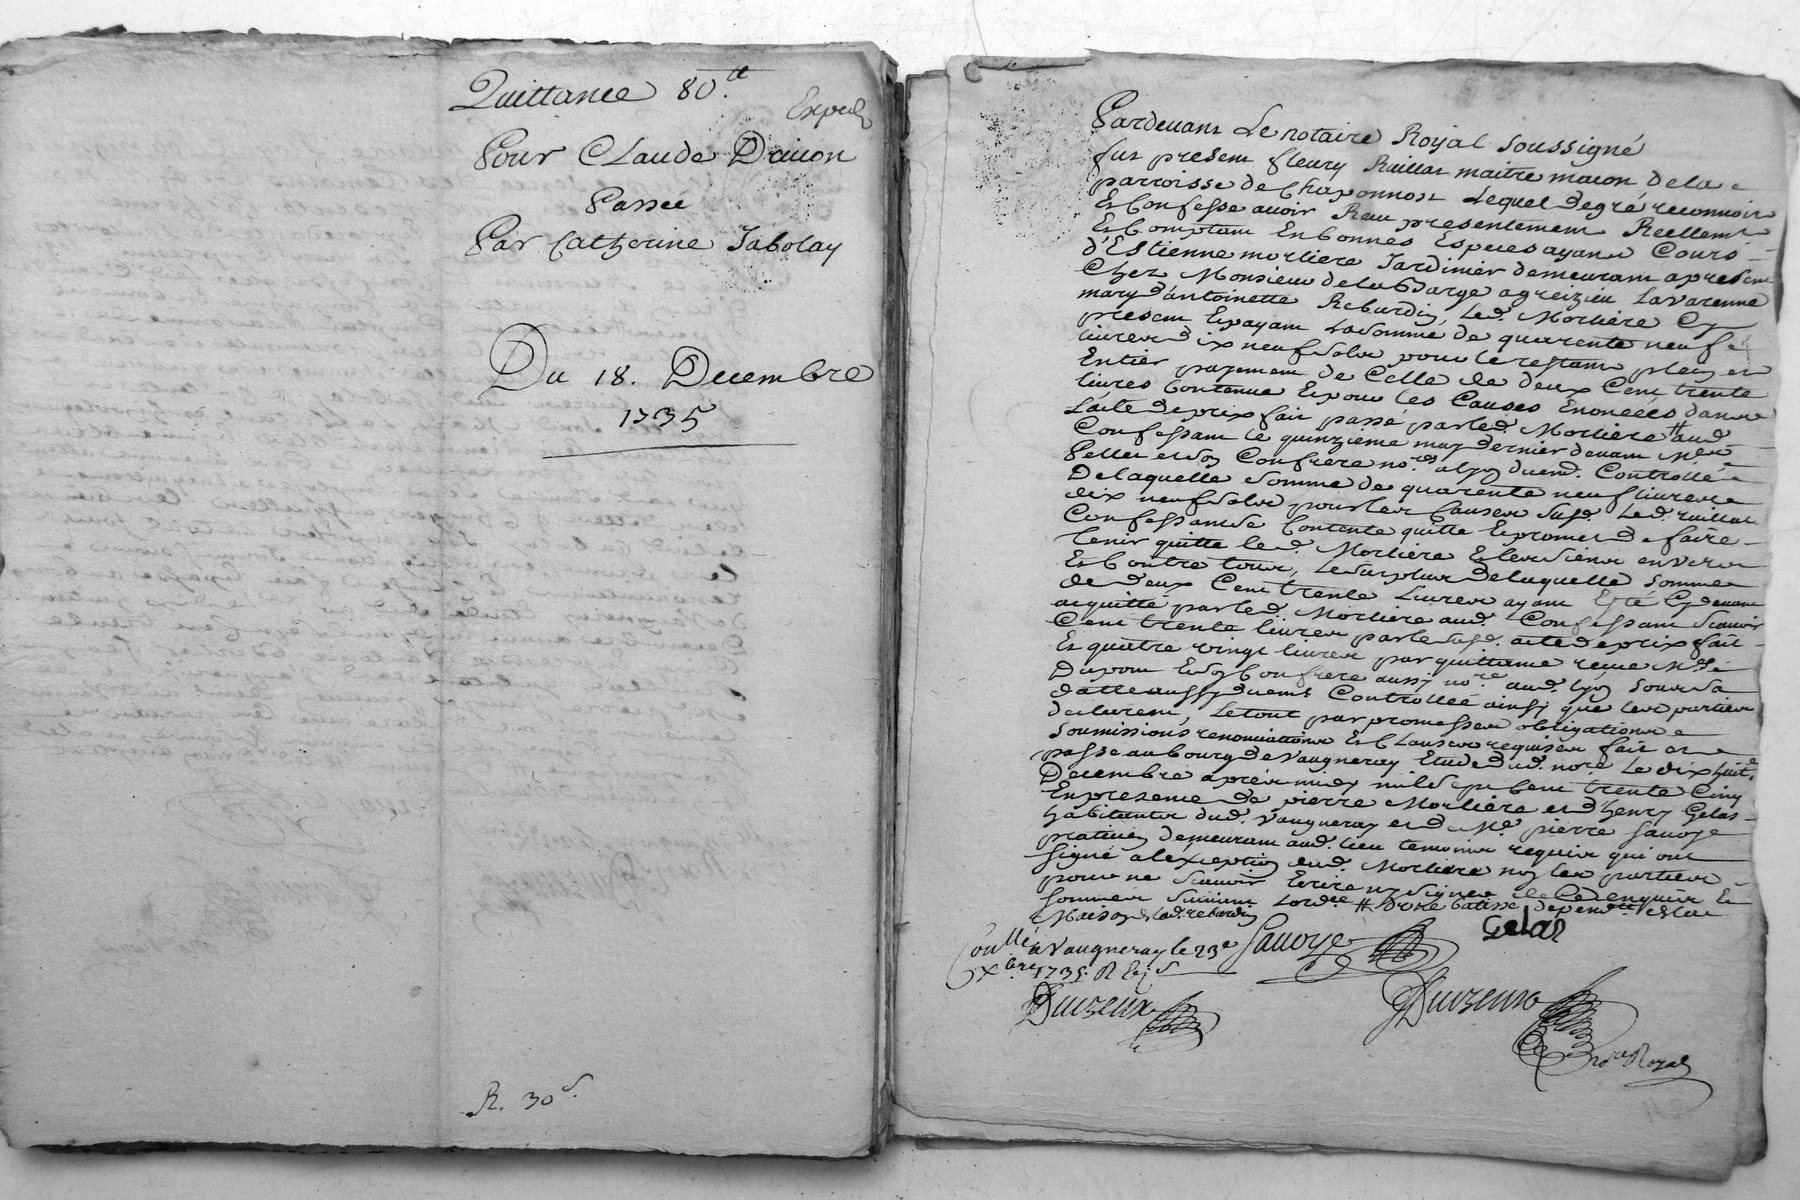 Quittance 80.tt
Exped
Pour Claude Dauon
Passée
Par Catherine Jabolay
Du 18. Decembre
1735
R. 30 s
Pardeuant Le notaire Royal soussigné
fut present fleury Raillat maitre macon de la
parroisse de Chaponnost Lequel de gré reconnoit
Et Confesse auoir Receu presentement Reellement
Et Comptant En bonnes Especes ayant Cours
d'Estienne morliere Jardinier demeurant a present
Chez Monsieur de la Barge a greizieu Lavarenne
mary d'antoinette Rebardin, Led. Morliere Cy
present Et payant La somme de quarente neuf
liures dix neuf sols pour le restant plein et
Entier payement de Celle de deux Cent trente
liures Contenue Et pour les Causes Enoncées dans
L'acte de prix fait passé par led. Morliere # aud
Confessant le quinzieme may dernier deuant Me
Confrere nore. a Lyon duemt. Controllé
De laquelle somme de quarente neuf liures
dix neuf sols pour les Causes susd. Led. raillat
Confessant se Contente quitte Et promet de faire
tenir quitte led. Morliere Et les siens envers
Et Contre tous, Le surplus de laquelle somme
de deux Cent trente Liures ayant Esté Cy deuant
acquitté par led. Morliere aud. Confessant scauoir
Cent trente liures par le susd. acte de prix fait
Et quatre vingt liures par quittance recue Me
Dupont Confrere aussy nore aud. Lyon sous sa
datte aussy duemt Controllée ainsy que les parties
declarent, Le tout par promesses obligations
soumissions renonciations Et Clauses requises fait et
passé au bourg de Vaugneray Etude dud. nore. Le dix huit
Decembre apres midy mil sept Cent trente Cinq
En presence de pierre Morliere et d'henry Gelas
habitants dud. Vaugneray et de Me. pierre sauoye
praticien demeurant aud. lieu temoins requis qui ont
signé a l'exception dud. Morliere non les parties
pour ne scauoir Ecrire ny signer de Ce Enquis Et
sommés suivant Lordce # d'une batisse dependte de la
Maison de lad. rebardin
Gelas
Coullé a Vaugneray le 23e
Xbre 1735. R
Sauoye
Duvzeux
Duvzeux
nore Royal